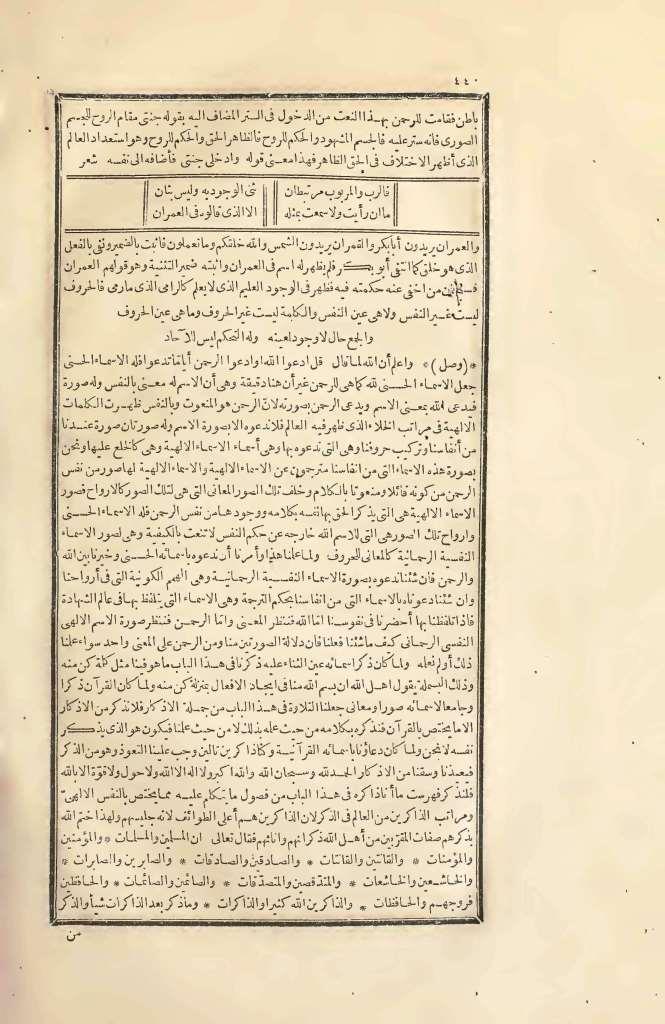 ٤٤٠
باطن فقامت للرحمن بهذا النعت من الدخول فى الستر المضاف اليه بقوله جنتى مقام الروح للجسم
الصورى فانه ستر عليه فالجسم المشهود والحكم للروح فالظاهر الحق والحكم للروح وهو استعداد العالم
الذى أظهر الاختلاف فى الحق الظاهر فهذا معنى قوله وادخلى جنتى فأضافه الى نفسه شعر
فالرب والمربوب مرتبطان ثنى الوجود به وليس بثان
ما ان رأيت ولا سمعت بمثله الا الذى قالوه فى العمران
والعمران يريدون أبا بكر والقمران يريدون الشمس والله خلقكم وما تعملون فأثبت بالضمير ونفى بالفعل
الذى هو خلق كما انتفى أبو بكر فلم يظهر له اسم فى العمران وأثبته ضمير التثنية وهو قولهم العمران
من اخفى عنه حكمته فيه فظهر فى الوجود العليم الذى لا يعلم كالرامى الذى ما رمى فالحروف
ليست غير النفس ولا هى عين النفس والكلمة ليست غير الحروف وما هى عين الحروف
والجمع حال لا وجود لعينه وله التحكم ليس للآحاد
* (وصل) * واعلم أن الله لما قال قل ادعوا الله او ادعوا الرحمن أياما تدعوا فله الاسماء الحسنى
جعل الاسماء الحسنى لله كما هى للرحمن غير أن هنا دقيقة وهى أن الاسم له معنى بالنفس وله صورة
فيدعى الله بمعنى الاسم ويدعى الرحمن بصورته لان الرحمن هو المنعوت وبالنفس ظهرت الكلمات
الالهية فى مراتب الخلاء الذى ظهر فيه العالم فلا ندعوه الا بصورة الاسم وله صورتان صورة عندنا
من أنفاسنا وتركيب حروفنا وهى التى ندعوه بها وهى أسماء الاسماء الالهية وهى كالخلع عليها ونحن
بصورة هذه الاسماء التى من انفاسنا مترجمون عن الاسماء الالهية والاسماء الالهية لها صور من نفس
الرحمن من كونه قائلا ومنعوتا بالكلام وخلف تلك الصور المعانى التى هى لتلك الصور كالارواح فصور
الاسماء الالهية هى التى يذكر الحق بها نفسه بكلامه ووجودها من نفس الرحمن فله الاسماء الحسنى
وارواح تلك الصور هى التى للاسم الله خارجه عن حكم النفس لا تنعت بالكيفية وهى لصور الاسماء
النفسية الرحمانية كالمعانى للحروف ولما علمنا هذا وأمرنا أن ندعوه باسمائه الحسنى وخيرنا بين الله
والرحمن فان شئنا ندعوه بصورة الاسماء النفسية الرحمانية وهى الهمم الكونية التى فى أرواحنا
وان شئنا دعوناه بالاسماء التى من انفاسنا بحكم الترجمة وهى الاسماء التى يتلفظ بها فى عالم الشهادة
فاذا تلفظنا بها أحضرنا فى نفوسنا اما الله فننظر المعنى واما الرحمن فننظر صورة الاسم الالهى
النفسى الرحمانى كيف ما شئنا فعلنا فان دلالة الصورتين منا ومن الرحمن على المعنى واحد سواء علمنا
ذلك أو لم نعلمه ولما كان ذكر اسمائه عين الثناء عليه ذكرنا فى هذا الباب ما هو فينا مثل كلمة كن منه
وذلك البسملة يقول اهل الله ان بسم الله منا فى ايجاد الافعال بمنزلة كن منه ولما كان القرآن ذكرا
وجامعا لاسمائه صورا ومعانى جعلنا التلاوة فى هذا الباب من جملة الاذكار فلا نذكر من الاذكار
الا ما يختص بالقرآن فنذكره بكلامه من حيث علمه بذلك لا من حيث علمنا فيكون هو الذى يذكر
نفسه لا نحن ولما كان دعاؤنا باسمائه القرآنية وكنا ذاكرين تالين وجب علينا التعوذ وهو من الذكر
فيعيذنا وسقنا من الاذكار الحمد لله وسبحان الله والله اكبر ولا اله الا الله ولا حول ولا قوة الا بالله
فلنذكر فهرست ما أنا ذاكره فى هذا الباب من فصول ما يتكلم عليه مما يختص بالنفس الالهى
ومراتب الذاكرين من العالم فى الذكر لان الذاكرين هم أعلى الطوائف لانه جليسهم ولهذا ختم الله
بذكرهم صفات المقربين من أهل الله ذكرانهم واناثهم فقال تعالى ان المسلمين والمسلمات * والمؤمنين
والمؤمنات * والقانتين والقانتات * والصادقين والصادقات * والصابرين والصابرات *
والخاشعين والخاشعات * والمتصدقين والمتصدقات * والصائمين والصائمات * والحافظين
فروجهم والحافظات * والذاكرين الله كثيرا والذاكرات * وما ذكر بعد الذاكرات شيأ والذكر
من